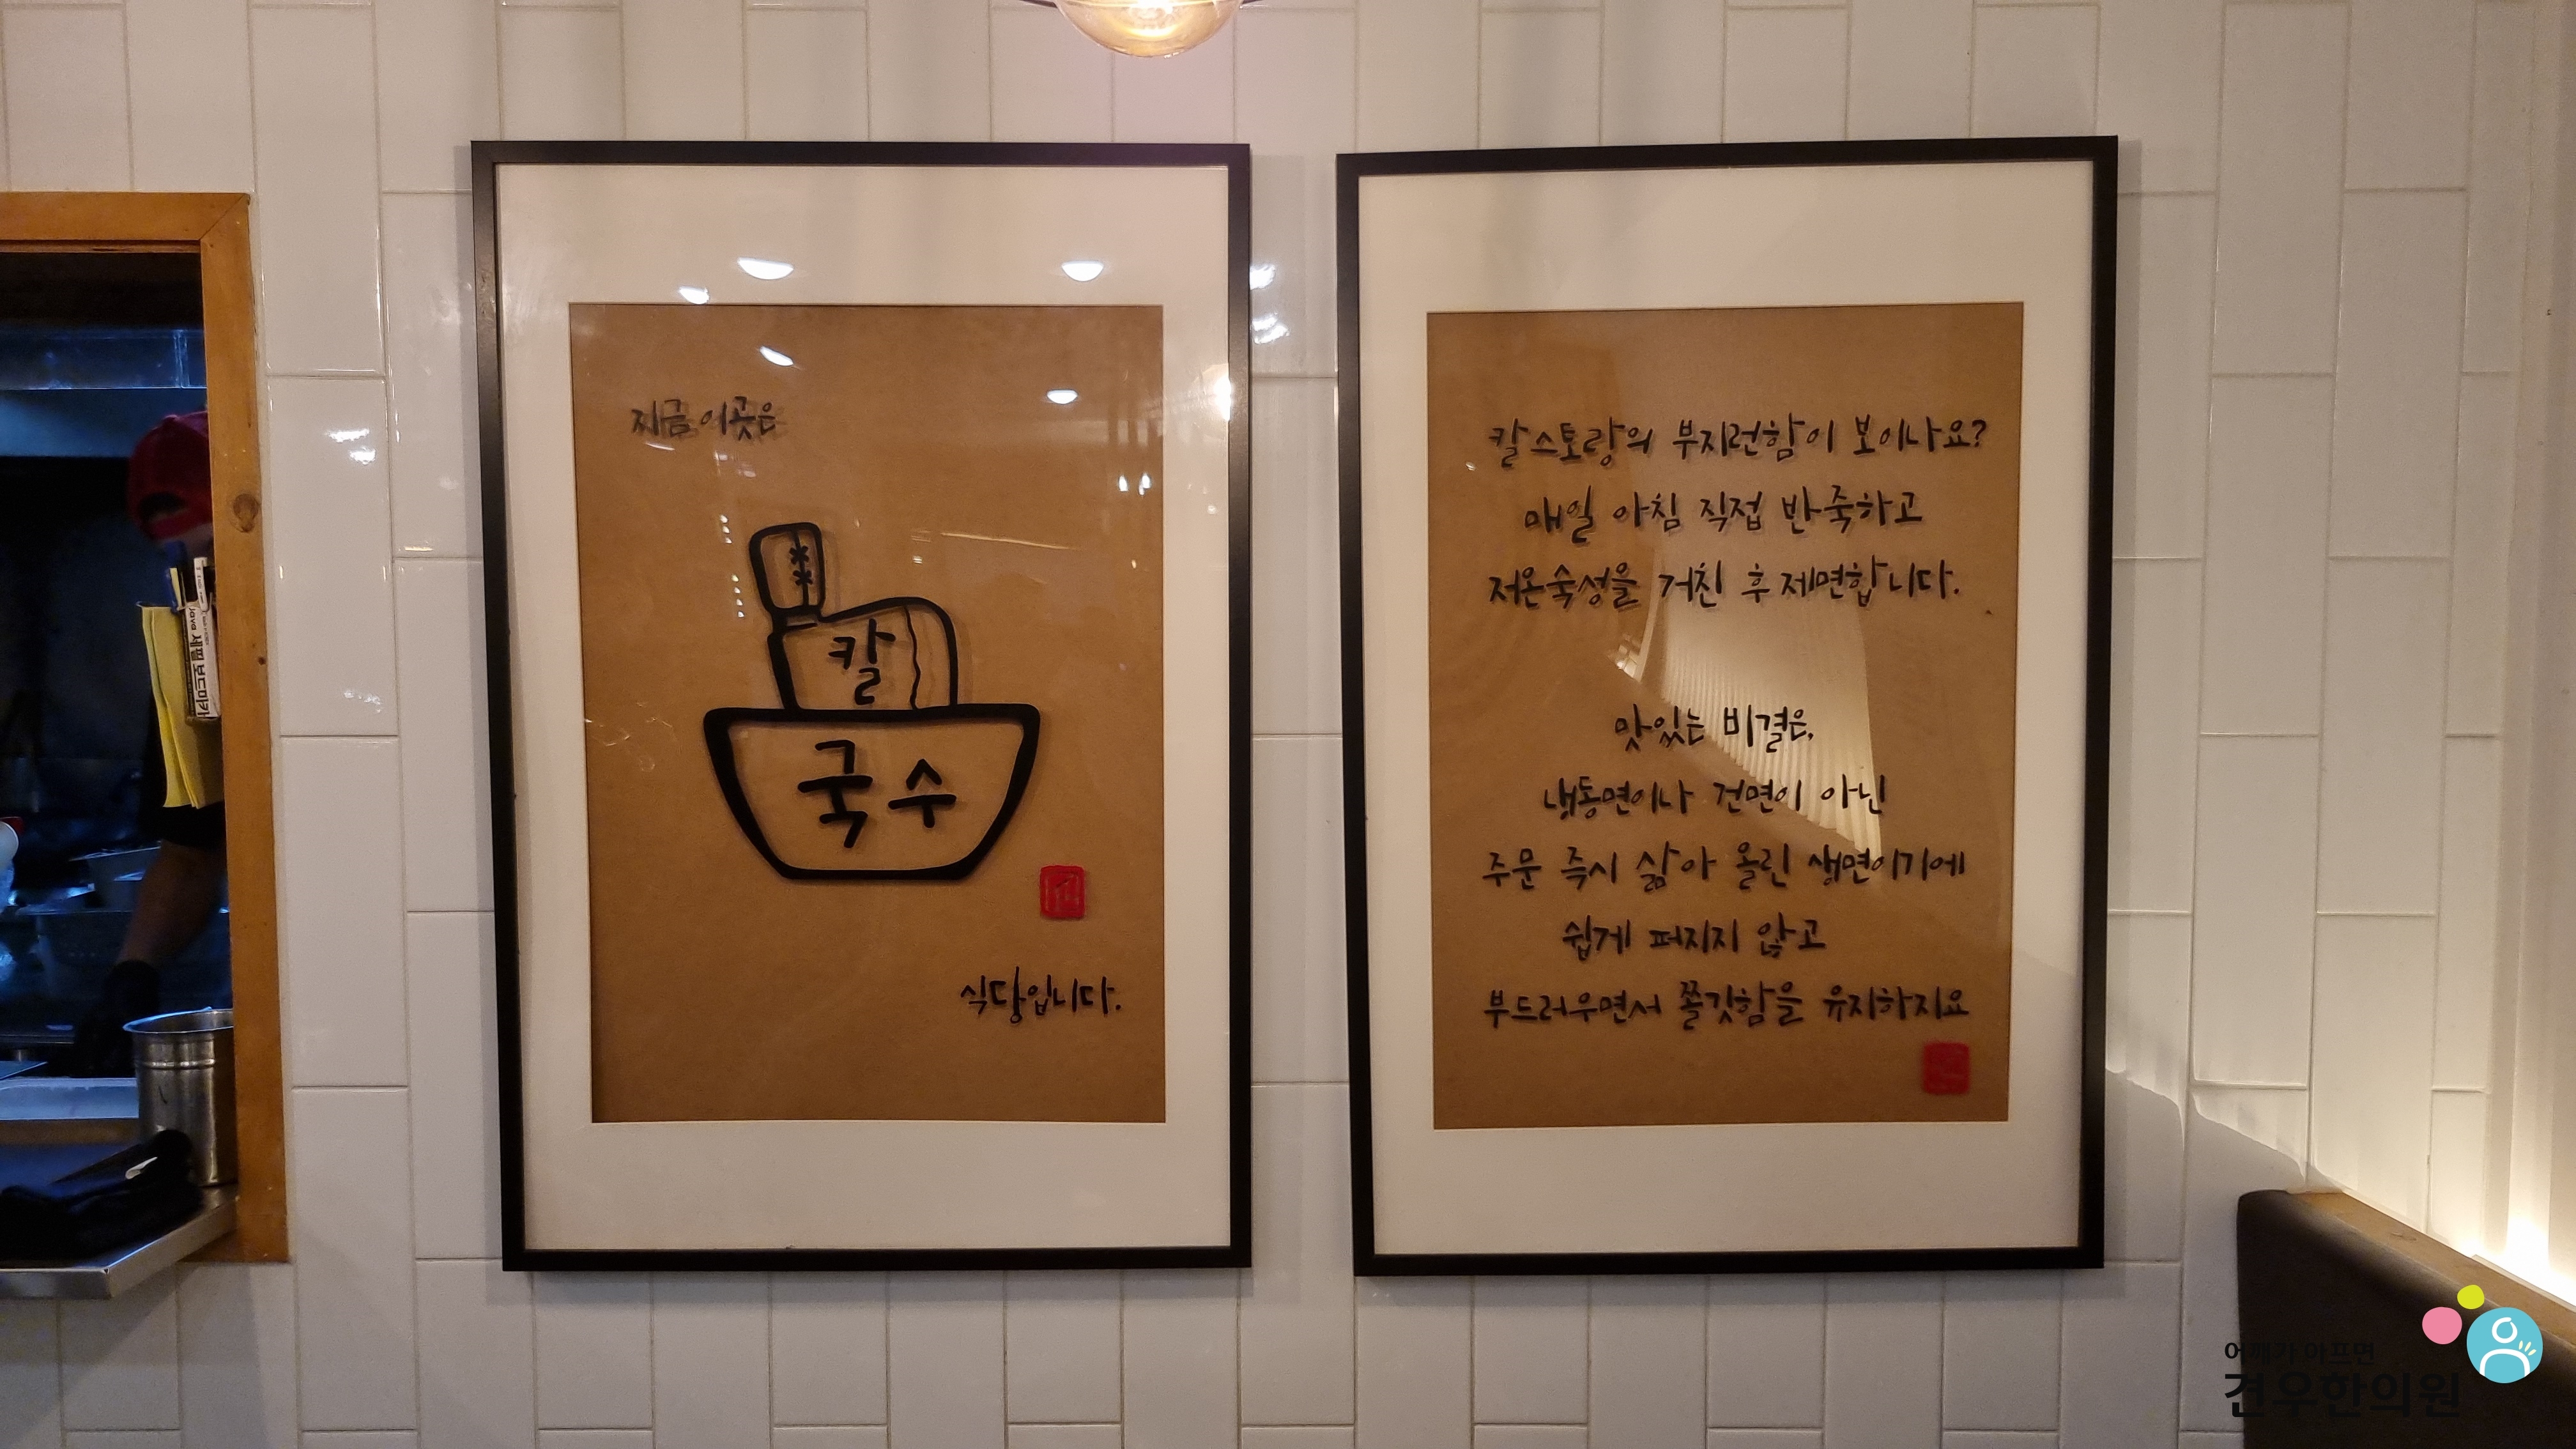 지금 이곳은
칼
국수
식당입니다.
칼스토랑의 부지런함이 보이나요?
매일 아침 직접 반죽하고
저온숙성을 거친 후 제면합니다.
맛있는 비결은,
냉동면이나 건면이 아닌
주문 즉시 삶아 올린 생면이기에
쉽게 퍼지지 않고
부드러우면서 쫄깃함을 유지하지요
어깨가 아프면
견우한의원